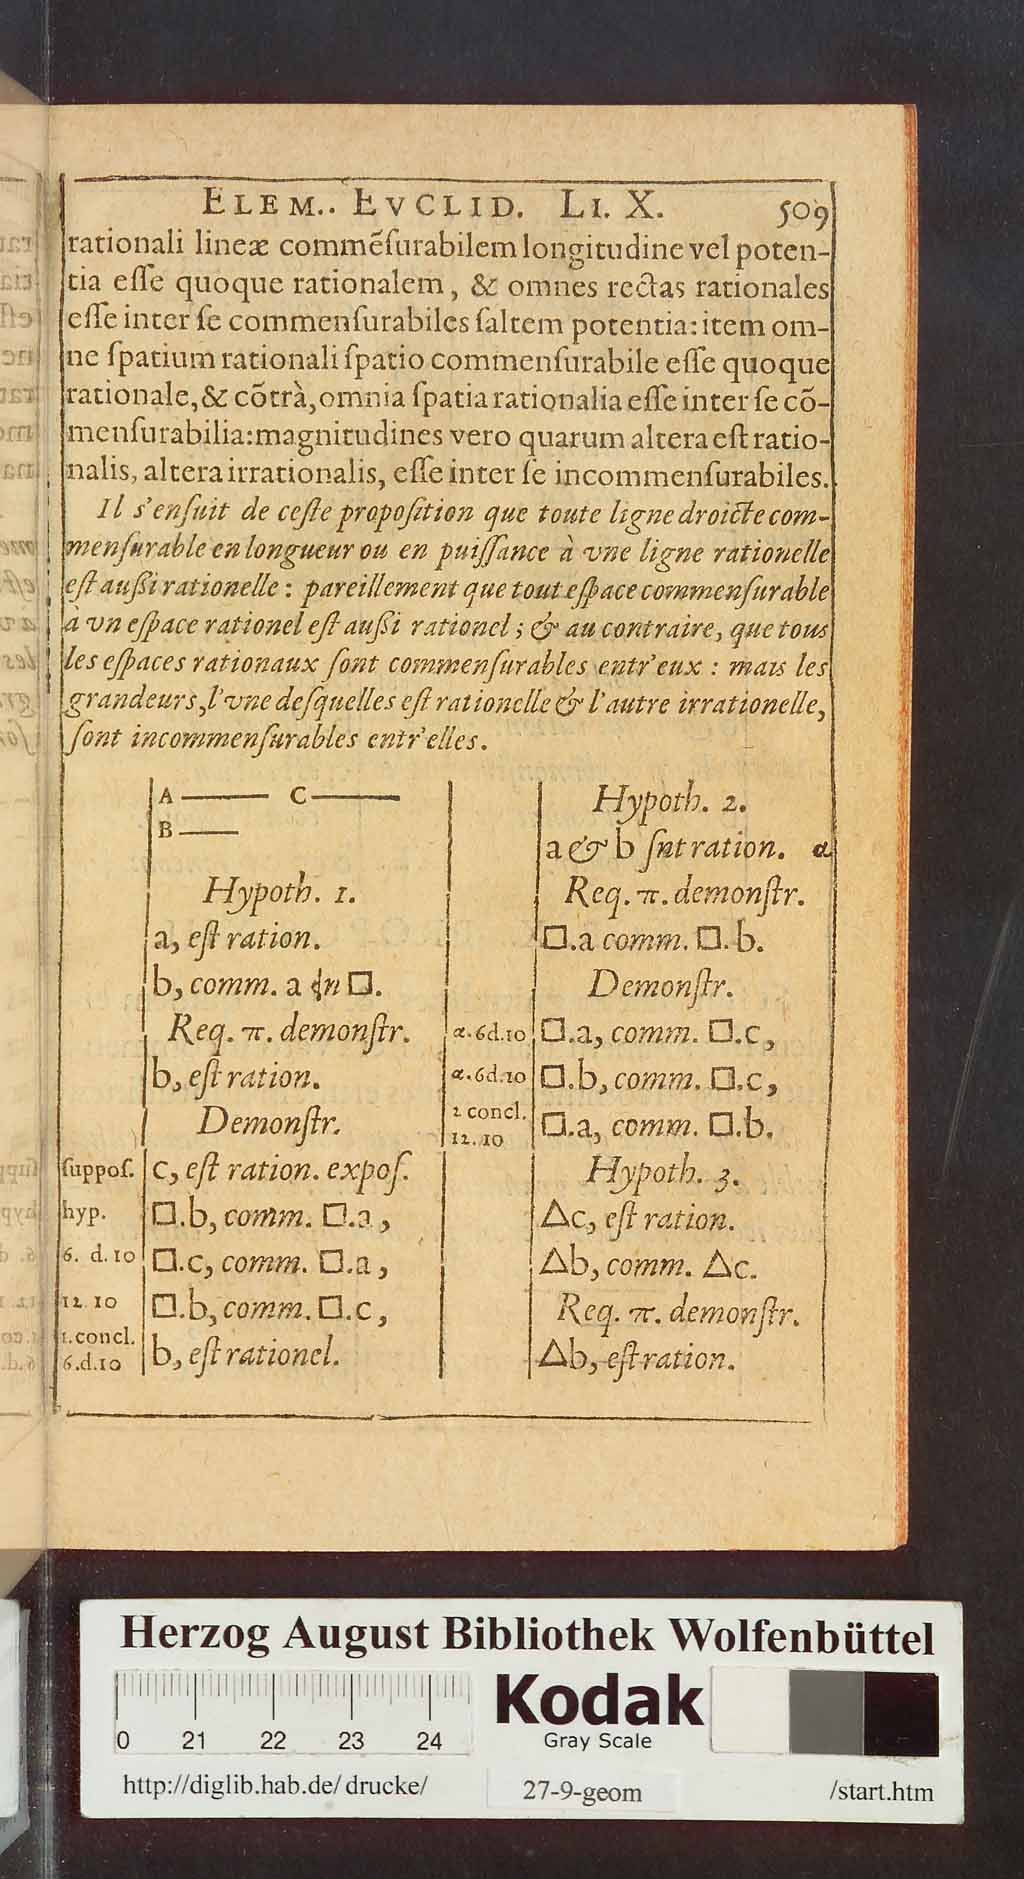 ELEM.. EVCLID. LI. X. 509
rationali lineæ commẽſurabilem longitudine vel poten-
tia eſſe quoque rationalem, & omnes rectas rationales
eſſe inter ſe commenſurabiles ſaltem potentia: item om-
ne ſpatium rationali ſpatio commenſurabile eſſe quoque
rationale, & cõtrà, omnia ſpatia rationalia eſſe inter ſe cõ-
menſurabilia: magnitudines vero quarum altera eſt ratio-
nalis, altera irrationalis, eſſe inter ſe incommenſurabiles.
Il s'enſuit de ceſte propoſition que toute ligne droicte com-
menſurable en longueur ou en puiſſance à vne ligne rationelle
eſt außi rationelle : pareillement que tout eſpace commenſurable
à vn eſpace rationel eſt außi rationel ; & au contraire, que tous
les eſpaces rationaux ſont commenſurables entr'eux : mais les
grandeurs, l'vne deſquelles eſt rationelle & l'autre irrationelle,
ſont incommenſurables entr'elles.
A C
B
Hypoth. 1.
a, eſt ration.
b, comm. a in □.
Req. π. demonſtr.
b, eſt ration.
Demonſtr.
ſuppoſ. c, eſt ration. expoſ.
hyp. □.b, comm. □.a,
6. d. 10 □.c, comm. □.a,
12. 10 □.b, comm. □.c,
1. concl.
6.d.10 b, eſt rationel.
Hypoth. 2.
a & b ſnt ration. α
Req. π. demonſtr.
□.a comm. □.b.
Demonſtr.
α. 6d.10 □.a, comm. □.c,
α. 6d.10 □.b, comm. □.c,
1 concl.
12. 10 □.a, comm. □.b.
Hypoth. 3.
△c, eſt ration.
△b, comm. △c.
Req. π. demonſtr.
△b, eſt ration.
Herzog August Bibliothek Wolfenbüttel
0 21 22 23 24
Kodak
Gray Scale
http://diglib.hab.de/ drucke/ 27-9-geom /start.htm